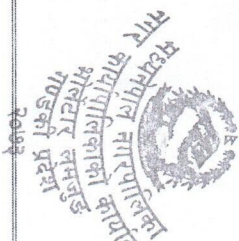 मध्यनेपाल नगरपालिका
नगर कार्यपालिकाको
भोर्लेटार लमजुङ
गण्डकी प्रदेश
२०७३